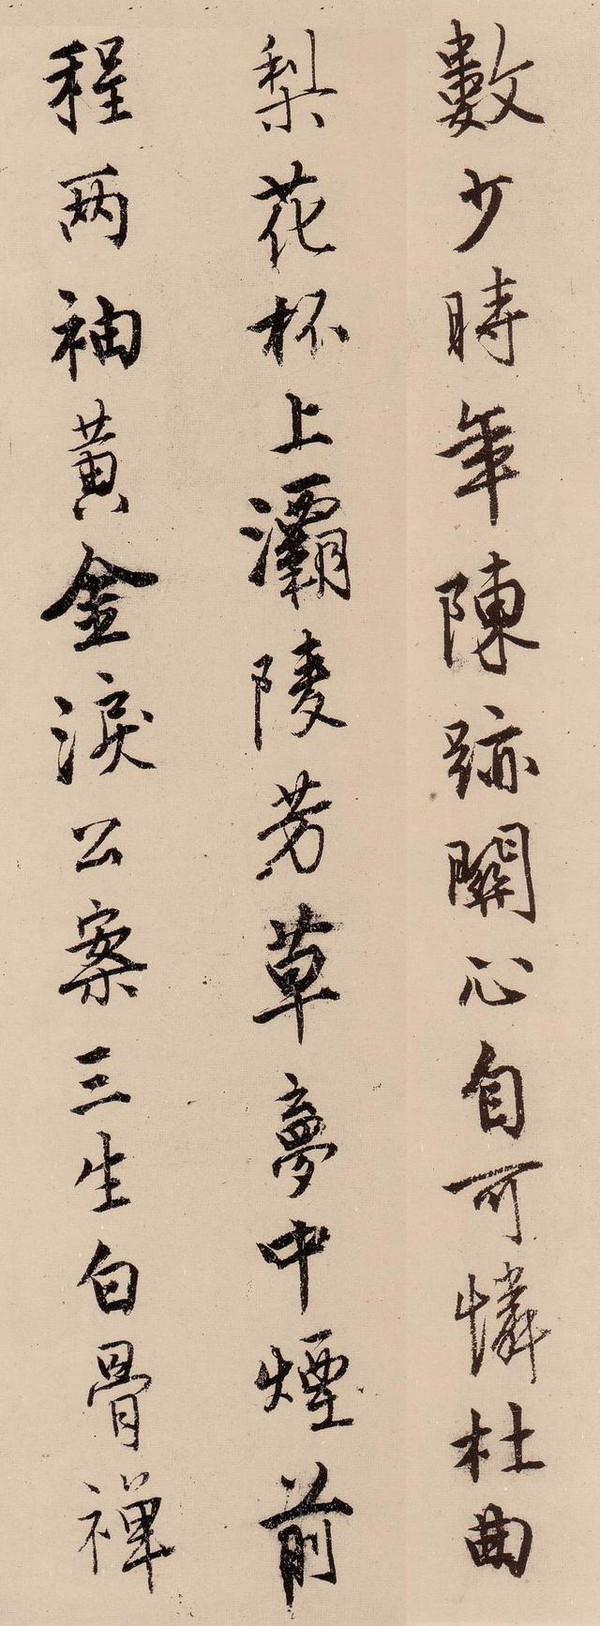 數少時年陳跡關心自可憐杜曲
梨花杯上灞陵芳草夢中煙前
程两袖黃金淚公案三生白骨禅